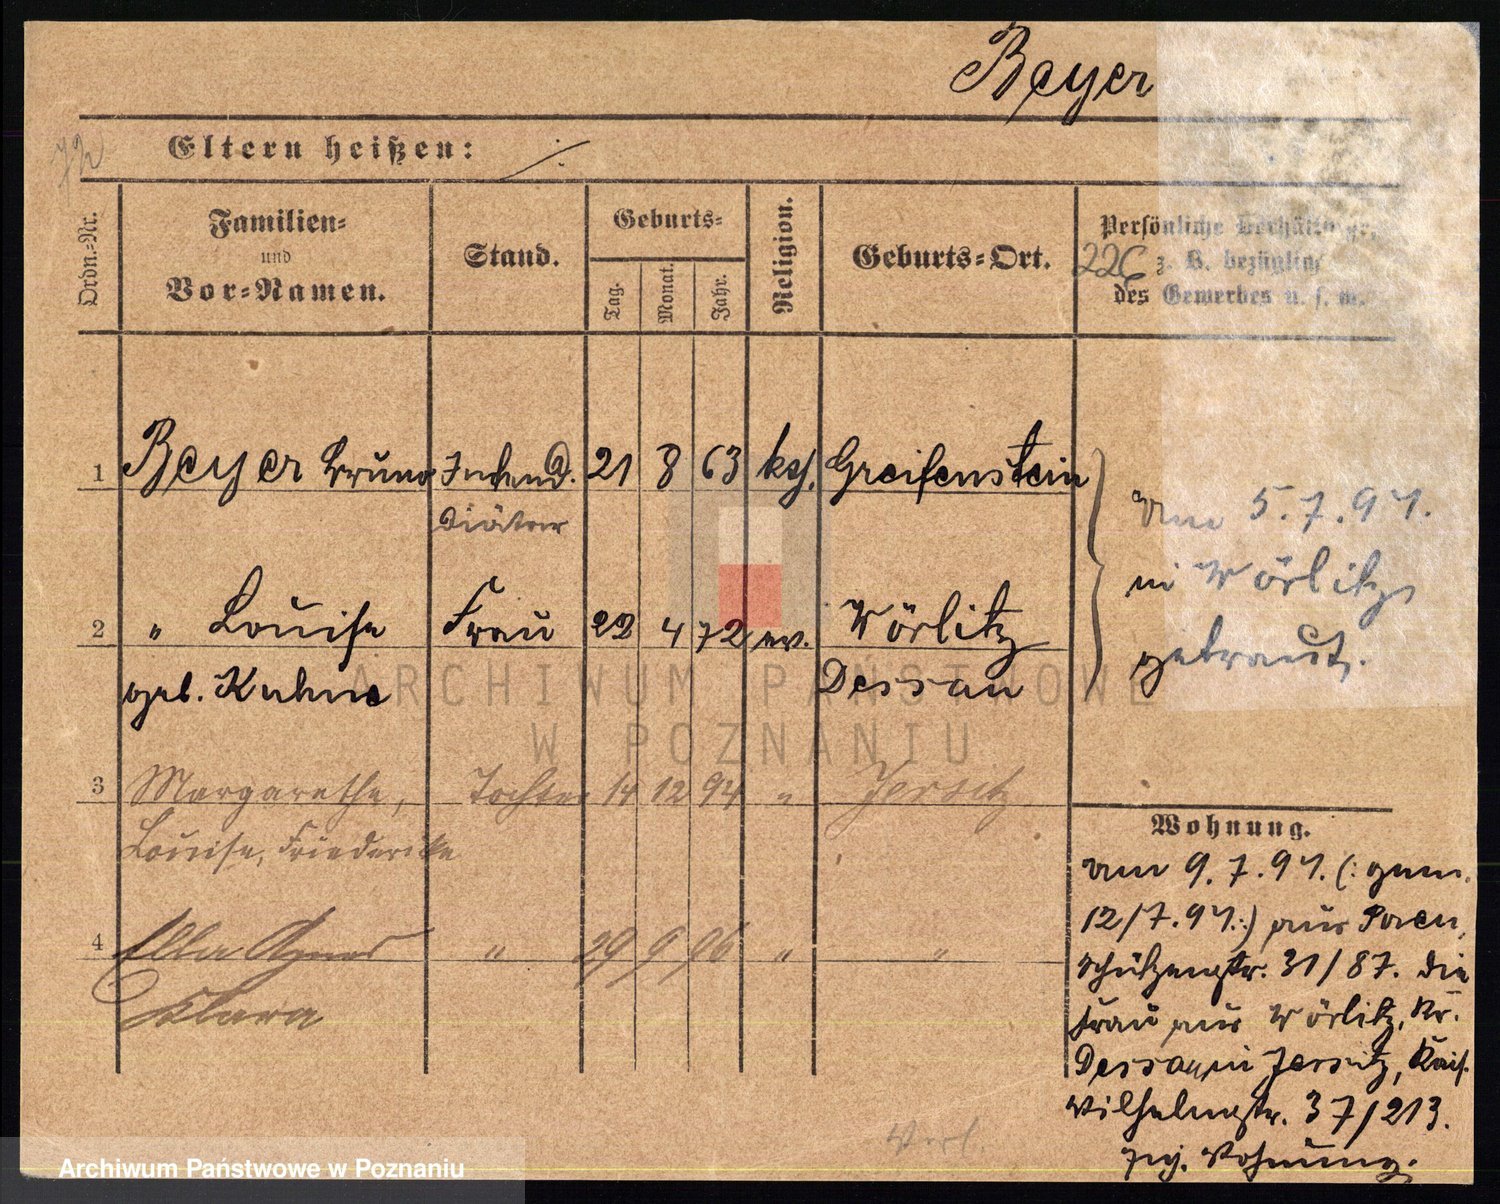 Beyer
72
Eltern heißen: ./.
Ordn.-Nr.
Familien-
und
Vor-Namen.
Stand.
Geburts-
Tag. Monat. Jahr.
Religion.
Geburts-Ort.
Persönliche Verhältnisse,
226 z. B. bezüglich
des Gewerbes u. s. w.
1 Beyer Bruno Intend. 21 8 63 ksh. Greifenstein
Diätar
am 5.7.94.
in Wörlitz
getraut.
2 " Louise Frau 22 4 72 ev. Wörlitz
geb. Kuhne Dessau
3 Margarethe, Tochter 14 12 94 " Jersitz
Louise, Friederike
4 Ella Agnes " 29 9 96 " "
Klara
Wohnung.
am 9.7.94. (: gem.
12/7.94:) aus Posen,
Schützenstr. 31/87. die
Frau aus Wörlitz, Kr.
Dessau, in Jersitz, Kais.
Wilhelmstr. 37/213.
zog. Wohnung.
Verl.
ARCHIWUM PAŃSTWOWE
W POZNANIU
Archiwum Państwowe w Poznaniu